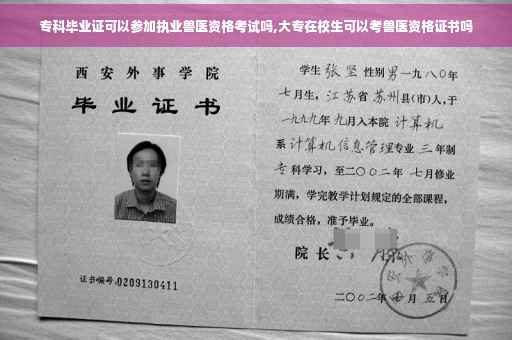 专科毕业证可以参加执业兽医资格考试吗,大专在校生可以考兽医资格证书吗
西安外事学院
毕业证书
证书编号:0209130411
学生 张坚 性别 男 一九八〇年
七月生, 江苏省 苏州县(市)人,于
一九九九年 九月入本院 计算机
系 计算机信息管理专业 三 年制
专 科学习,至二〇〇二年 七月修业
期满,学完教学计划规定的全部课程,
成绩合格,准予毕业。
院长
二〇〇二年 月 五日